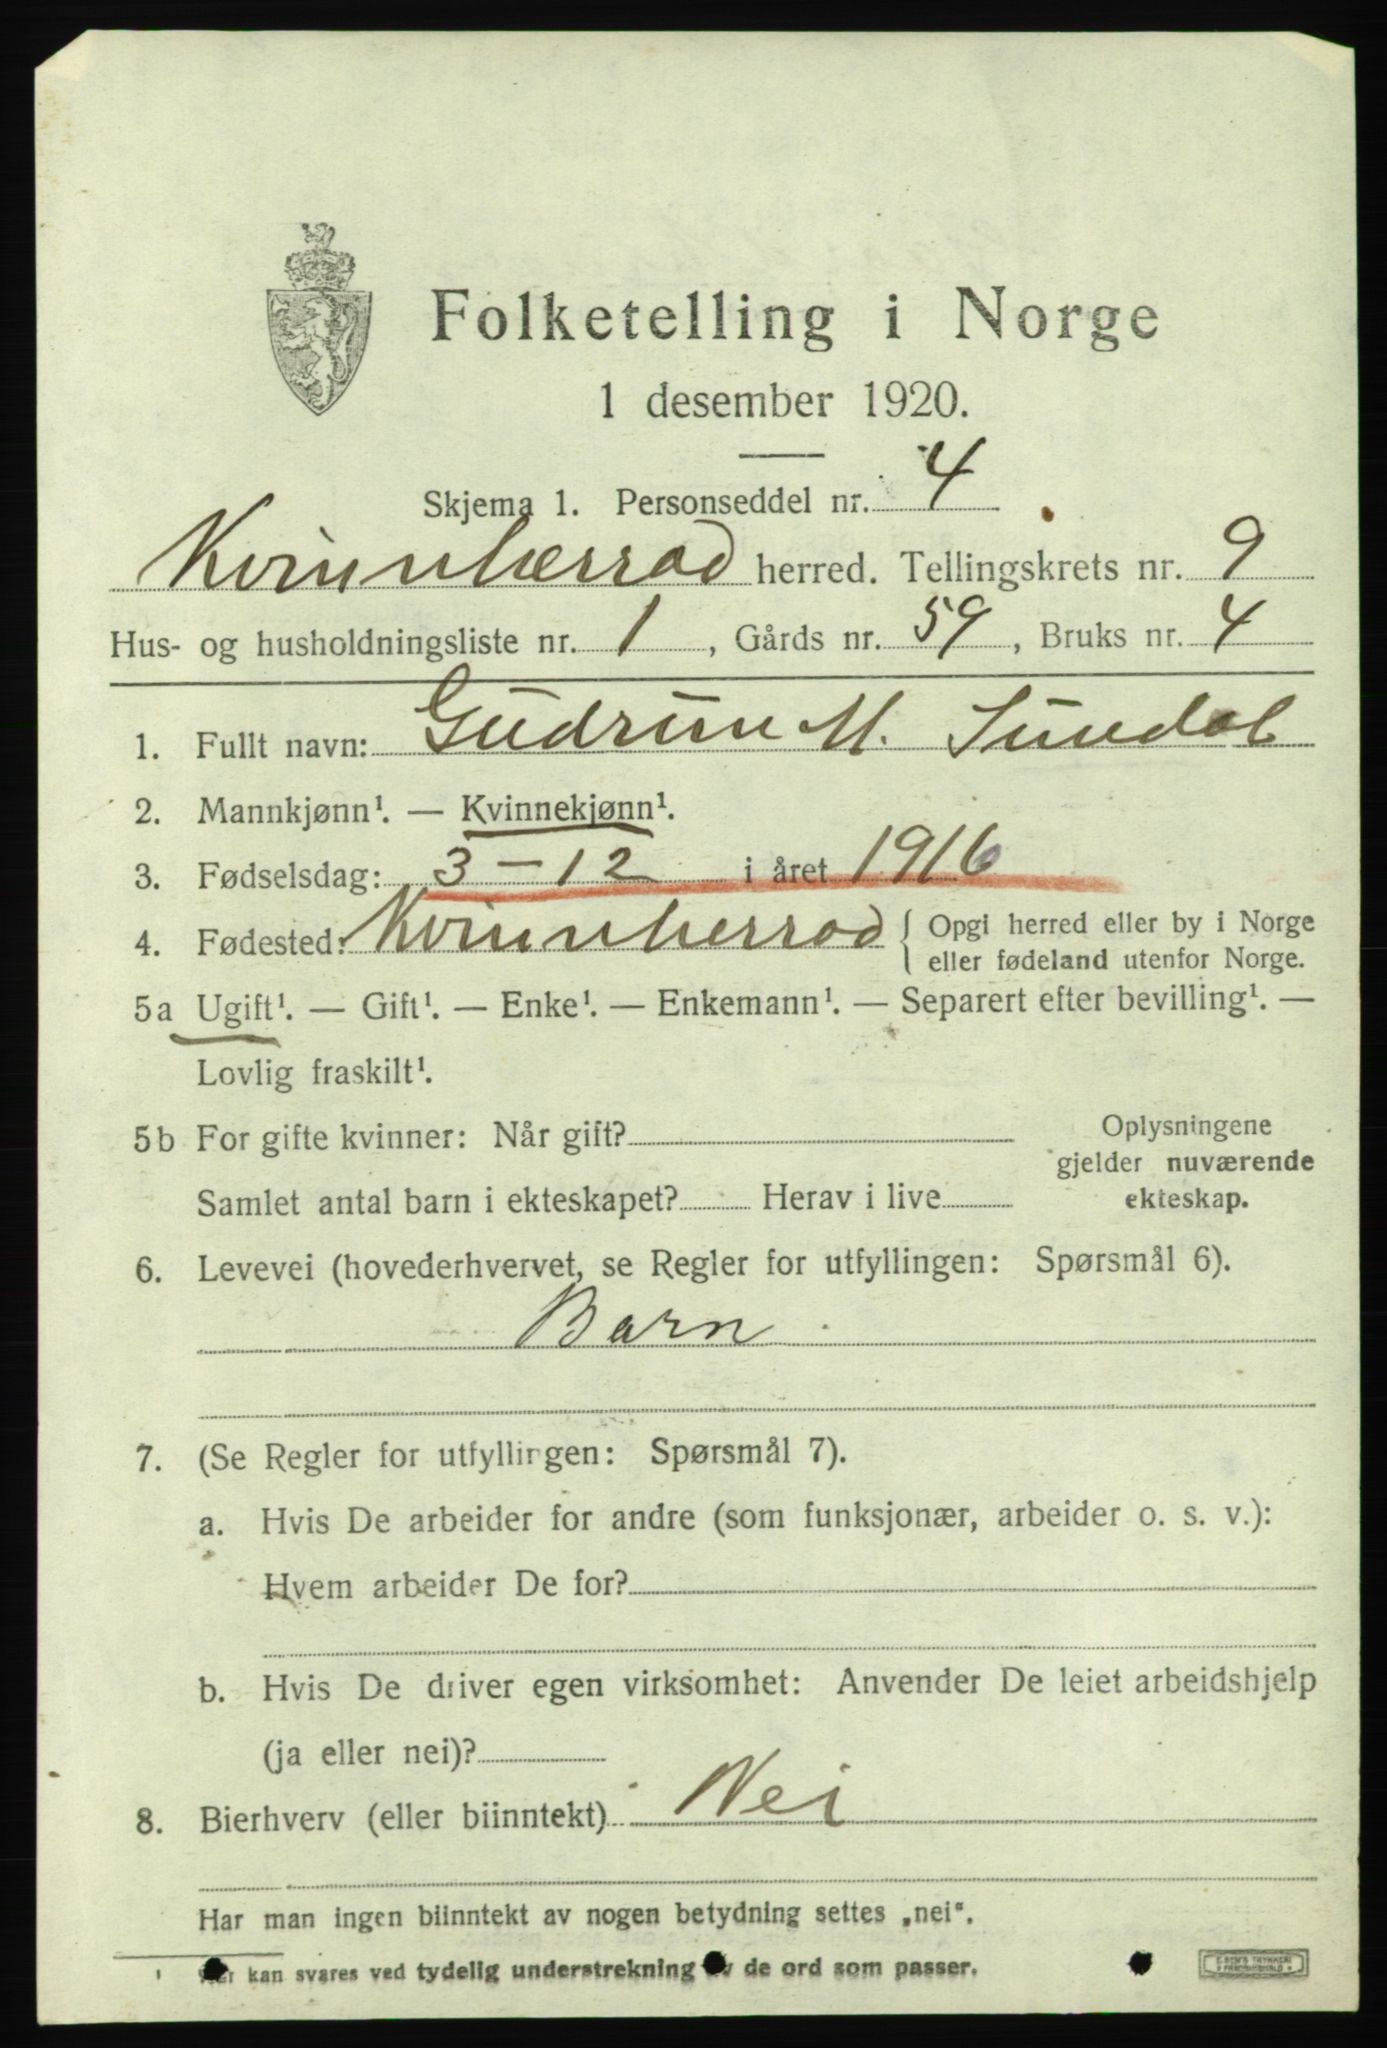 Folketelling i Norge
1 desember 1920.
Skjema 1. Personseddel nr. 4
Kvinnherrad herred. Tellingskrets nr. 9
Hus- og husholdningsliste nr. 1, Gårds nr. 59, Bruks nr. 4
1. Fullt navn: Gudrun M. Sundal
2. Mannkjønn¹. — Kvinnekjønn¹.
3. Fødselsdag: 3 – 12 i året 1916
4. Fødested: Kvinnherrad { Opgi herred eller by i Norge
eller fødeland utenfor Norge.
5a Ugift¹. — Gift¹. — Enke¹. — Enkemann¹. — Separert efter bevilling¹. —
Lovlig fraskilt¹.
5b For gifte kvinner: Når gift?
Samlet antal barn i ekteskapet? Herav i live
Oplysningene
gjelder nuværende
ekteskap.
6. Levevei (hovederhvervet, se Regler for utfyllingen: Spørsmål 6).
Barn
7. (Se Regler for utfyllingen: Spørsmål 7).
a. Hvis De arbeider for andre (som funksjonær, arbeider o. s. v.):
Hvem arbeider De for?
b. Hvis De driver egen virksomhet: Anvender De leiet arbeidshjelp
(ja eller nei)?
8. Bierhverv (eller biinntekt) Nei
Har man ingen biinntekt av nogen betydning settes „nei“.
¹ kan svares ved tydelig understrekning av de ord som passer.